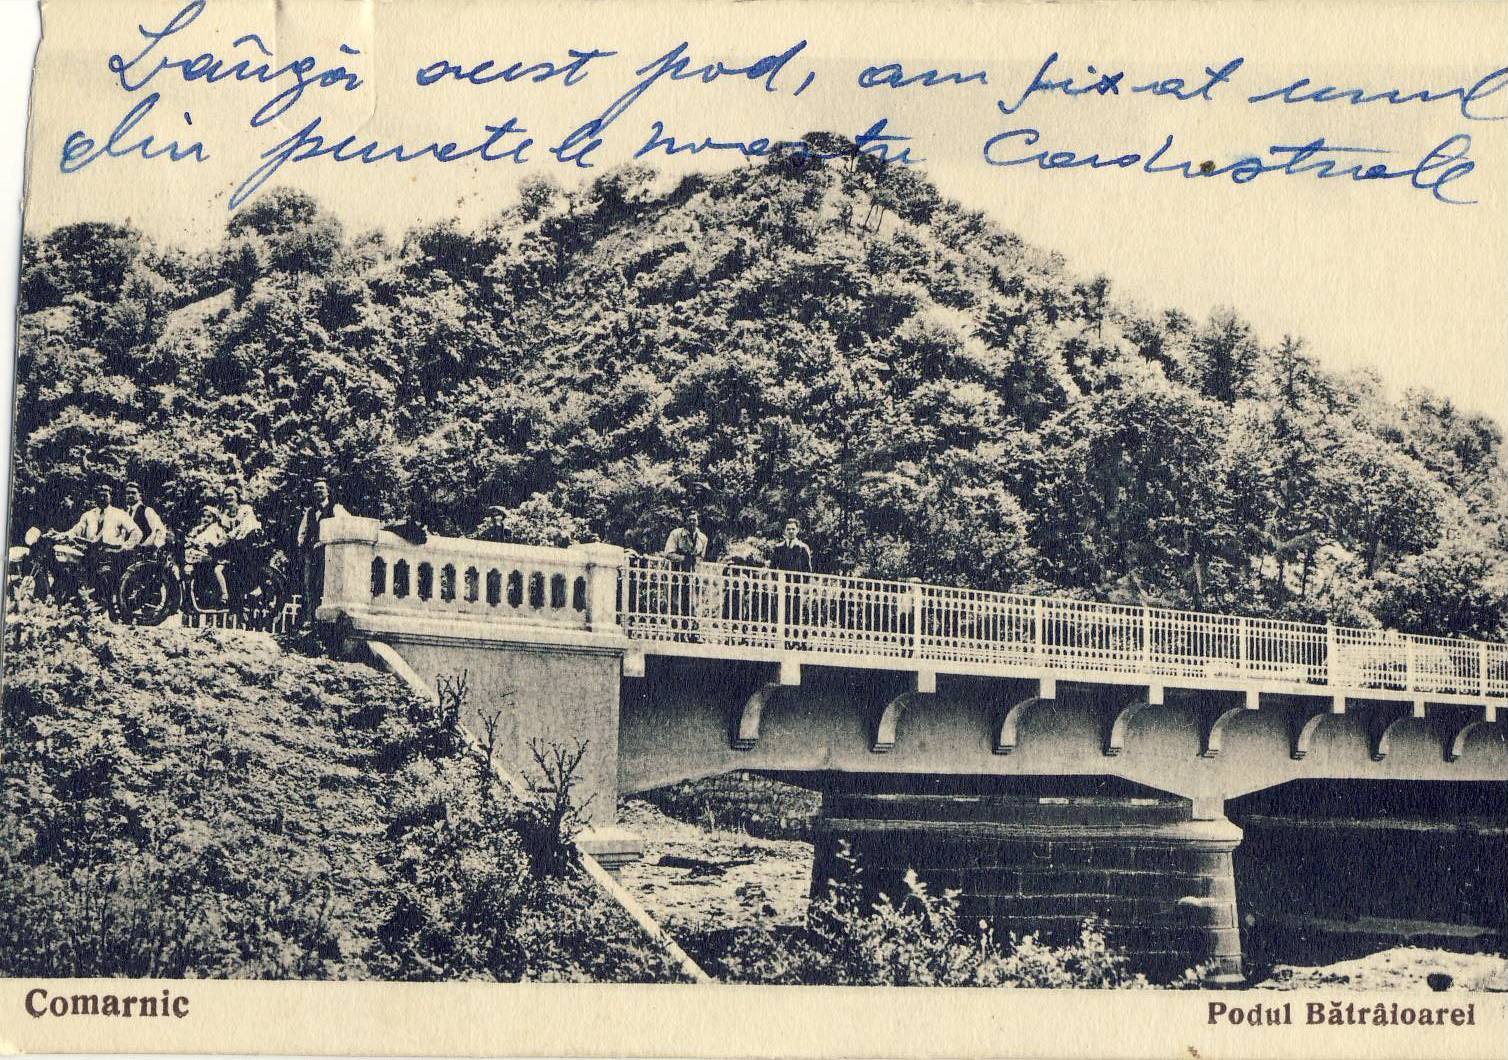 Lângă acest pod, am fixat unul
din punctele noastre Cadastrale
Comarnic
Podul Bătrâioarei